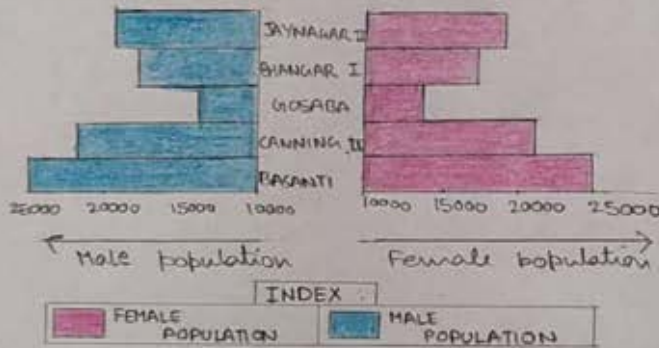 JAYNAGAR II
BHANGAR I
GOSABA
CANNING II
BASANTI
25000 20000 15000 10000
10000 15000 20000 25000
Male population
Female population
INDEX
FEMALE POPULATION
MALE POPULATION